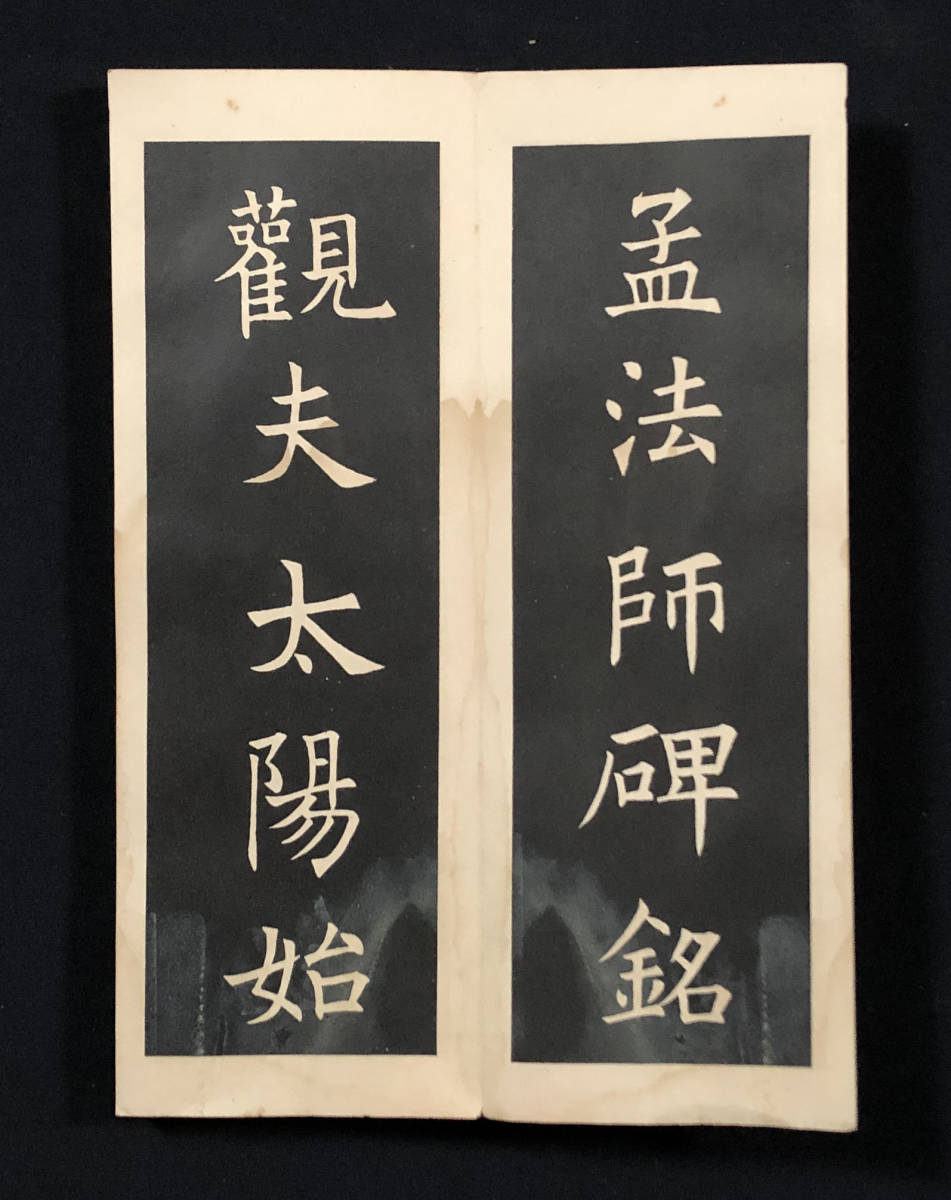 孟法師碑銘
觀夫太陽始